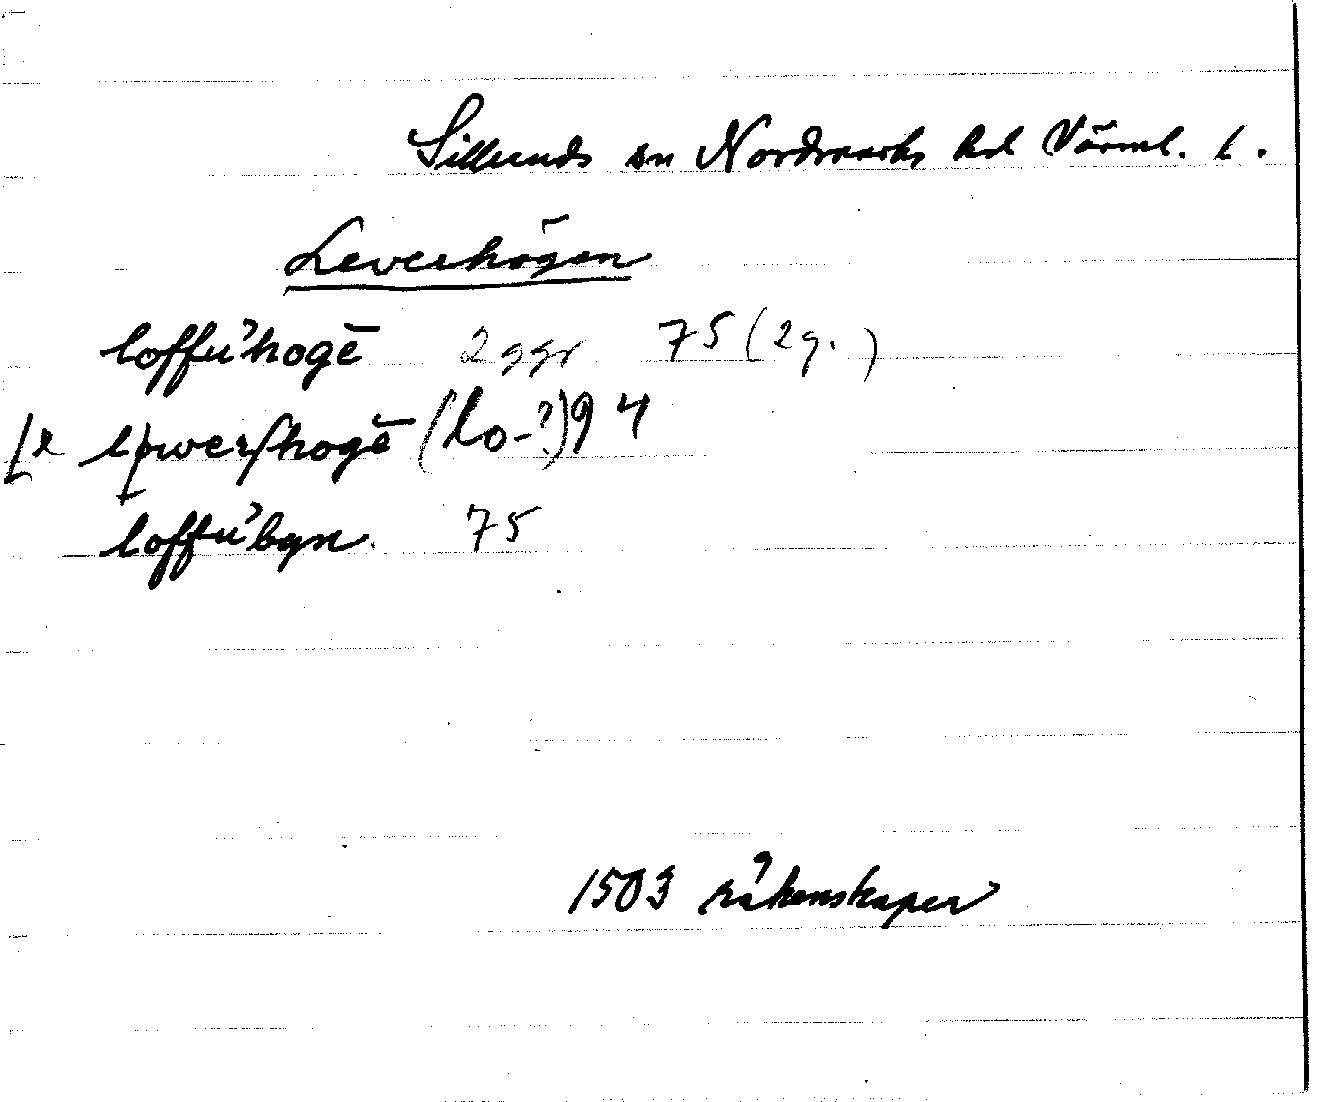 Silleruds sn Nordmarks hd Värml. l.
Leverhögen
loffu'hogē 2 ggr 75 (2 g.)
løwerſhogē (Lo-?) 94
loffu'byn. 75
1503 räkenskaper